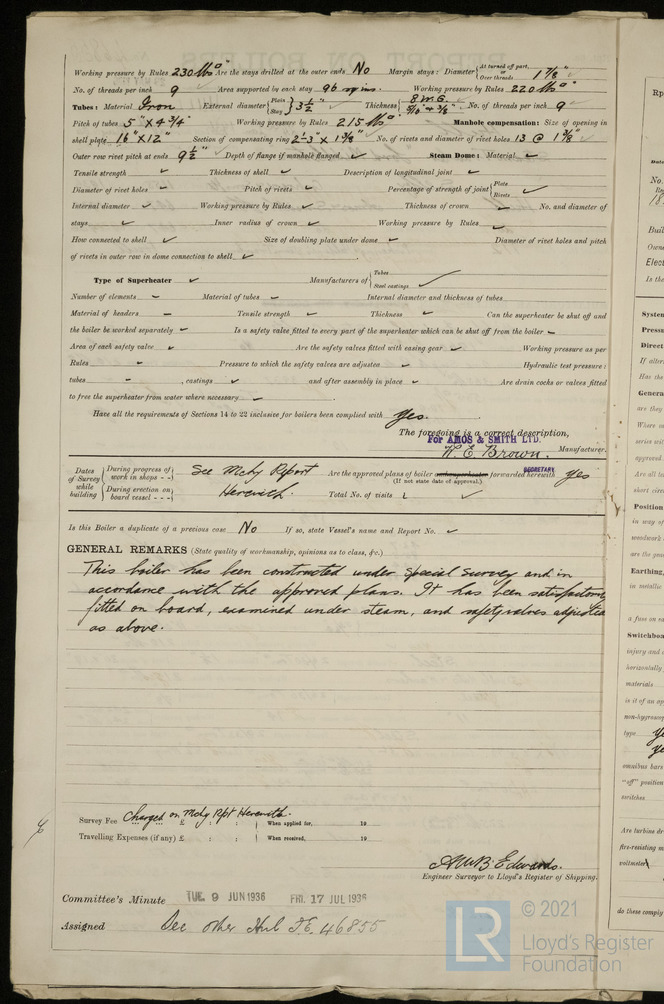 Working pressure by Rules 230 lbs □" Are the stays drilled at the outer ends No Margin stays: Diameter { At turned off part, or Over threads 1 7/8"
No. of threads per inch 9 Area supported by each stay 96 sq ins. Working pressure by Rules 220 lbs □"
Tubes: Material Iron External diameter { Plain Stay } 3 1/2" ✓ Thickness { 8 W.G. 5/16" & 3/8" ✓ No. of threads per inch 9
Pitch of tubes 5" X 4 3/4" Working pressure by Rules 215 lbs □" Manhole compensation: Size of opening in
shell plate 16" X 12" Section of compensating ring 2'-3" X 1 3/8" ✓ No. of rivets and diameter of rivet holes 13 @ 1 3/8" ✓
Outer row rivet pitch at ends 9 1/2" Depth of flange if manhole flanged ✓ Steam Dome: Material ✓
Tensile strength ✓ Thickness of shell ✓ Description of longitudinal joint ✓
Diameter of rivet holes ✓ Pitch of rivets ✓ Percentage of strength of joint { Plate Rivets ✓
Internal diameter ✓ Working pressure by Rules ✓ Thickness of crown ✓ No. and diameter of
stays ✓ Inner radius of crown ✓ Working pressure by Rules ✓
How connected to shell ✓ Size of doubling plate under dome ✓ Diameter of rivet holes and pitch
of rivets in outer row in dome connection to shell ✓
Type of Superheater ✓ Manufacturers of { Tubes Steel castings ✓
Number of elements ✓ Material of tubes ✓ Internal diameter and thickness of tubes
Material of headers — Tensile strength ✓ Thickness ✓ Can the superheater be shut off and
the boiler be worked separately ✓ Is a safety valve fitted to every part of the superheater which can be shut off from the boiler ✓
Area of each safety valve ✓ Are the safety valves fitted with easing gear ✓ Working pressure as per
Rules — Pressure to which the safety valves are adjusted ✓ Hydraulic test pressure:
tubes — , castings ✓ and after assembly in place ✓ Are drain cocks or valves fitted
to free the superheater from water where necessary ✓
Have all the requirements of Sections 14 to 22 inclusive for boilers been complied with Yes.
The foregoing is a correct description,
For AMOS & SMITH LTD.
W. E. Brown. Manufacturer.
SECRETARY
Dates of Survey while building { During progress of work in shops - - } See Mchy Report Are the approved plans of boiler and superheater forwarded herewith Yes
(If not state date of approval.)
{ During erection on board vessel - - - } Herewith. Total No. of visits ✓
Is this Boiler a duplicate of a previous case No If so, state Vessel's name and Report No. ✓
GENERAL REMARKS (State quality of workmanship, opinions as to class, &c.)
This boiler has been constructed under Special Survey and in
accordance with the approved plans. It has been satisfactorily
fitted on board, examined under steam, and safety valves adjusted
as above.
Survey Fee Charged on Mchy Rpt Herewith. £ : : When applied for, 19
Travelling Expenses (if any) £ : : When received, 19
A.W.B. Edwards.
Engineer Surveyor to Lloyd's Register of Shipping.
Committee's Minute TUE. 9 JUN 1936 FRI. 17 JUL 1936
Assigned See other Hul J.E. 46855
© 2021
LR Lloyd's Register
Foundation